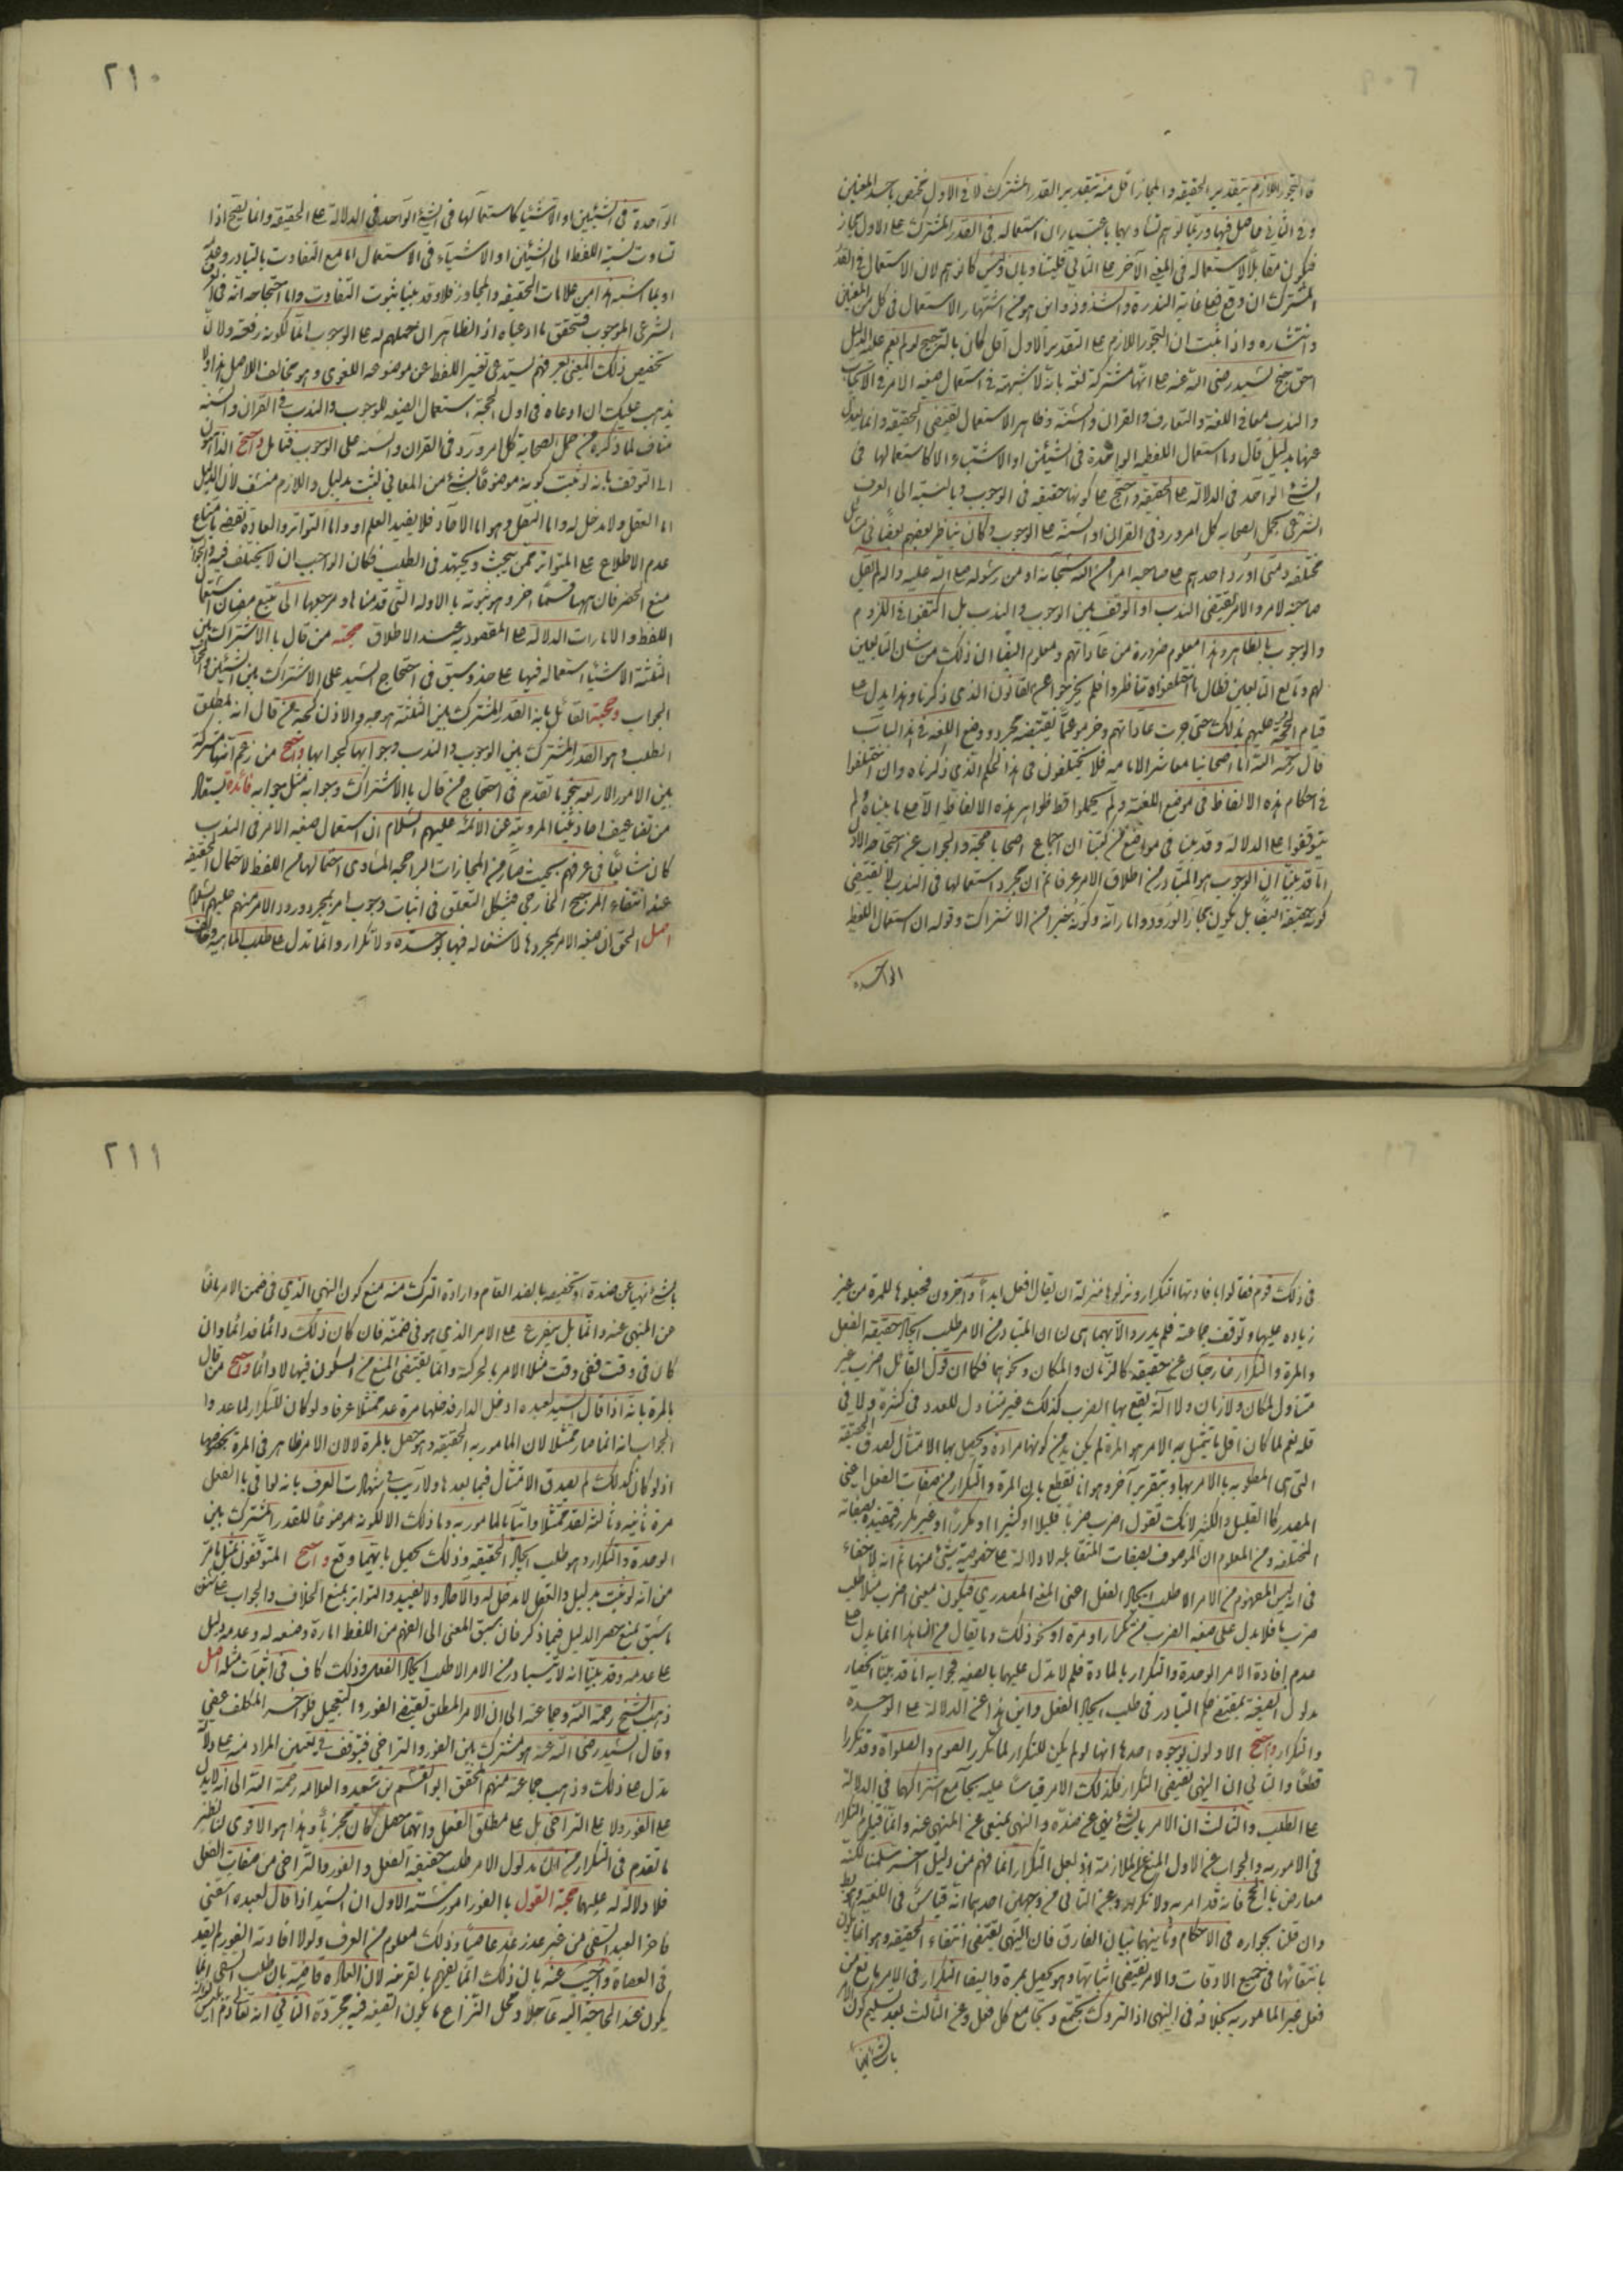 ة التجوز اللازم بتقدير الحقيقة والمجاز اقل منه بتقدير القدر المشترك لانه في الاول مختص باحد المعنيين
وفي الثاني حاصل فيها وربما توهم تساويهما باعتبار ان استعماله في القدر المشترك على الاول مجاز
فيكون مقابلا لاستعماله في المعنى الآخر على الثاني فليتساويان وليس كما توهم لان الاستعمال في القدر
المشترك ان وقع فعلى غاية الندرة والشذوذ واين هو من اشتهار الاستعمال في كل من المعنيين
وانتشاره واذا ثبت ان التجوز اللازم على التقدير الاول اقل كان بالترجيح لو لم يقم عليه الدليل
احق حجة السيد رضي الله عنه على انها مشتركة لغة بانه لا شبهة في استعمال صيغة الامر في الايجاب
والندب معا في اللغة والتعارف والقران والسنة وظاهر الاستعمال يقتضي الحقيقة وانما يعدل
عنها بدليل قال وما استعمال اللفظة الواحدة في الشيئين او الاشياء الا كاستعمالها في
الشئ الواحد في الدلالة على الحقيقة واحتج على كونها حقيقة في الوجوب وبالنسبة الى العرف
الشرعي بحمل الصحابة كل امر ورد في القران او السنة على الوجوب وكان يناظر بعضهم بعضا في مسائل
مختلفة ومتى اورد احدهم على صاحبه امرا من الله سبحانه او من رسوله صلى الله عليه واله لم يقل
صاحبه الامر والامر يقتضي الندب او الوقف بين الوجوب والندب بل اكتفوا في اللزوم
والوجوب بالظاهر وهذا معلوم ضرورة من عاداتهم ومعلوم ايضا ان ذلك من شان التابعين
لهم وتابع التابعين فطال ما اختلفوا وتناظروا فلم يخرجوا عن القانون الذي ذكرنا وهذا يدل على
قيام الحجة عليهم بذلك حتى جرت عاداتهم وخرجوا عما يقتضيه مجرد وضع اللغة في هذا الباب
قال رحمه الله اما اصحابنا معاشر الامامية فلا يختلفون في هذا الحكم الذي ذكرناه وان اختلفوا
في احكام هذه الالفاظ في موضع اللغة ولم يحملوا قط ظواهر هذه الالفاظ الا على ما بيناه ولم
يتوقفوا على الدلالة وقد بينا في مواضع من كتبنا ان اجماع اصحابنا حجة والجواب عن احتجاجه الاول
انا قد بينا ان الوجوب هو المتبادر من اطلاق الامر عرفا ثم ان مجرد استعمالها في الندب لا يقتضي
كونه حقيقة ايضا بل يكون مجازا لوروده وامارانه وكونه خيرا من الاشتراك وقوله ان استعمال اللفظ
الواحدة
٢١٠
الواحدة في الشيئين او الاشياء كاستعمالها في الشئ الواحد في الدلالة على الحقيقة وانما يصح اذا
تساوت نسبة اللفظ الى الشيئين او الاشياء في الاستعمال اما مع التفاوت بالتبادر وعدمه
او بما اشبه هذا من علامات الحقيقة والمجاز فلا وقد بينا ثبوت التفاوت واما احتجاجه انه في العرف
الشرعي للوجوب فتحقق ما ادعياه اذ الظاهر ان حملهم له على الوجوب انما لكونه له لغة ولان
تخصيص ذلك المعنى بعرفهم يستدعي تغيير اللفظ عن موضوعه اللغوي وهو مخالف للاصل هذا ولا
يذهب عليك ان ادعاه في اول الحجة استعمال الصيغة للوجوب والندب في القران والسنة
مناف لما ذكره من حمل الصحابة كل امر ورد في القران والسنة على الوجوب فتامل واحتج الذاهبون
الى التوقف بانه لو ثبت كونه موضوعا لشئ من المعاني لثبت بدليل واللازم منتف لان الدليل
اما العقل ولا مدخل له واما النقل وهو اما الآحاد فلا يفيد العلم او واما التواتر والعادة تقتضي بامتناع
عدم الاطلاع على التواتر ممن يبحث ويجتهد في الطلب فكان الواجب ان لا يختلف فيه والجواب
منع الحصر فان ههنا قسما اخر وهو ثبوته بالادلة التي قدمناها ومرجعها الى تتبع مضان استعمال
اللفظ والامارات الدلالة على المقصود به عند الاطلاق حجة من قال بالاشتراك بين
الثلثة الاشياء استعماله فيها على حذو سبق في احتجاج السيد على الاشتراك بين الشيئين والجواب
الجواب وحجة القائل بانه القدر المشترك بين الثلثة وهو الاذن كحجة من قال انه لمطلق
الطلب وهو القدر المشترك بين الوجوب والندب وجوابها كجوابها واحتج من زعم انها مشتركة
بين الامور الاربعة بنحو ما تقدم في احتجاج من قال بالاشتراك وجوابه مثل جوابه فائدة يستفاد
من تضاعيف احاديثنا المروية عن الائمة عليهم السلام ان استعمال صيغة الامر في الندب
كان شائعا في عرفهم بحيث صار من المجازات الراجحة المساوي احتمالها من اللفظ لاحتمال الحقيقة
عند انتفاء المرجح الخارجي فيشكل التعلق في اثبات وجوب امر بمجرد ورود الامر منهم عليهم السلام
اصل الحق ان صيغة الامر بمجردها لا اشعار فيها بوحدة ولا تكرار وانما تدل على طلب الماهية وخالف
في ذلك قوم فقالوا بافادتها التكرار ونزلوها منزلة ان يقال افعل ابدا وآخرون فجعلوها للمرة من غير
زيادة عليها وتوقف جماعة فلم يدروا لايهما هي لنا ان المتبادر من الامر طلب ايجاد حقيقة الفعل
والمرة والتكرار خارجان عن حقيقته كالزمان والمكان ونحوهما فكما ان قول القائل اضرب غير
متناول لمكان ولا زمان ولا آلة يقع بها الضرب كذلك غير متناول للعدد في كثرة ولا في
قلة نعم لما كان اقل ما يتمثل به الامر هو المرة لم يكن بد من كونها مرادة ويحصل بها الامتثال لصدق الحقيقة
التي هي المطلوبة بالامر بها وبتقرير آخر وهو انا نقطع بان المرة والتكرار من صفات الفعل اعني
المصدر كالقليل والكثير لانك تقول اضرب ضربا قليلا او كثيرا او مكررا او غير مكرر فتقيده بصفاته
المختلفة ومن المعلوم ان الموصوف بصفات المتقابلة لا دلالة على خصوصية شئ منها ثم انه لا خفاء
في انه ليس المفهوم من الامر الا طلب ايجاد الفعل اعني المعنى المصدري فيكون معنى اضرب مثلا طلب
ضرب ما فلا يدل على صفة الضرب من تكرار او مرة او نحو ذلك وما يقال من ان هذا انما يدل على
عدم افادة الامر الوحدة والتكرار بالمادة فلم لا يدل عليهما بالصيغة فجوابه انا قد بينا انحصار
مدلول الصيغة بمقتضى حكم التبادر في طلب ايجاد الفعل واين هذا عن الدلالة على الوحدة
والتكرار واحتج الاولون بوجوه احدها انها لو لم يكن للتكرار لما تكرر الصوم والصلوة وقد تكررا
قطعا والثاني ان النهي يقتضي التكرار فكذلك الامر قياسا عليه بجامع اشتراكهما في الدلالة
على الطلب والثالث ان الامر بالشئ نهي عن ضده والنهي يمنع عن المنهي عنه دائما فيلزم التكرار
في المامور به والجواب عن الاول المنع من الملازمة اذ لعل التكرار انما فهم من دليل اخر سلمنا لكنه
معارض بالحج فانه قد امر به ولا تكرار وعن الثاني من وجهين احدهما انه قياس في اللغة وهو باطل
وان قلنا بجوازه في الاحكام وثانيهما بيان الفارق فان النهي يقتضي انتفاء الحقيقة وهو انما يكون
بانتفائها في جميع الاوقات والامر يقتضي اثباتها وهو يحصل بمرة وايضا التكرار في الامر مانع من
فعل غير المامور به بخلافه في النهي اذ التروك تجتمع وتجامع كل فعل وعن الثالث بعد تسليم كون الامر
بالشئ نهيا
٢١١
بالشئ نهيا عن ضده او تخصيصه بالضد العام وارادة الترك منه منع كون النهي الذي في ضمن الامر مانعا
من المنهي عنه دائما بل يتفرع على الامر الذي هو في ضمنه فان كان ذلك دائما فدائما وان
كان في وقت ففي وقت مثلا الامر بالحركة دائما يقتضي المنع من السكون فيها لا دائما واحتج من قال
بالمرة بانه اذا قال السيد لعبده ادخل الدار فدخلها مرة عد ممتثلا عرفا ولو كان للتكرار لما عد وا
الجواب انه انما صار ممتثلا لان المامور به الحقيقة وهو حصل بالمرة لا لان الامر ظاهر في المرة بخصوصها
اذ لو كان كذلك لم يصدق الامتثال فيما بعدها ولا ريب في شهادت العرف بانه لو اتى بالفعل
مرة ثانية وثالثة لعد ممتثلا واتيا بالمامور به وما ذلك الا لكونه موضوعا للقدر المشترك بين
الوحدة والتكرار وهو طلب ايجاد الحقيقة وذلك يحصل بايهما وقع واحتج المتوقفون بمثل ما مر
من انه لو ثبت لثبت بدليل والعقل لا مدخل له والآحاد ولا تفيد والتواتر يمنع الخلاف والجواب على سنن
ما سبق بمنع حصر الدليل فيما ذكر فان سبق المعنى الى الفهم من اللفظ امارة وضعه له وعدمه دليل
على عدمه وقد بينا انه لا يتبادر من الامر الا طلب ايجاد الفعل وذلك كاف في اثبات مثله اصل
ذهب الشيخ رحمه الله وجماعة الى ان الامر المطلق يقتضي الفور والتعجيل فلو اخر المكلف عصى
وقال السيد رضي الله عنه هو مشترك بين الفور والتراخي فيتوقف في تعيين المراد منه على دلالة
تدل على ذلك وذهب جماعة منهم المحقق ابو القسم بن سعيد والعلامة رحمه الله الى انه لا يدل
على الفور ولا على التراخي بل على مطلق الفعل وايهما حصل كان مجزيا وهذا هو الاقوى لنا نظير
ما تقدم في التكرار من ان مدلول الامر طلب حقيقة الفعل والفور والتراخي من صفات الفعل
فلا دلالة له عليهما حجة القول بالفور امور ستة الاول ان السيد اذا قال لعبده اسقني
فاخر العبد السقي من غير عذر عد عاصيا وذلك معلوم من العرف ولولا افادته الفور لم يعد
في العصاة واجيب عنه بان ذلك انما يفهم بالقرينة لان العادة قاضية بان طلب السقي انما
يكون عند الحاجة اليه عاجلا ومحل النزاع ما يكون الصيغة فيه مجردة الثاني انه تعالى ذم ابليس